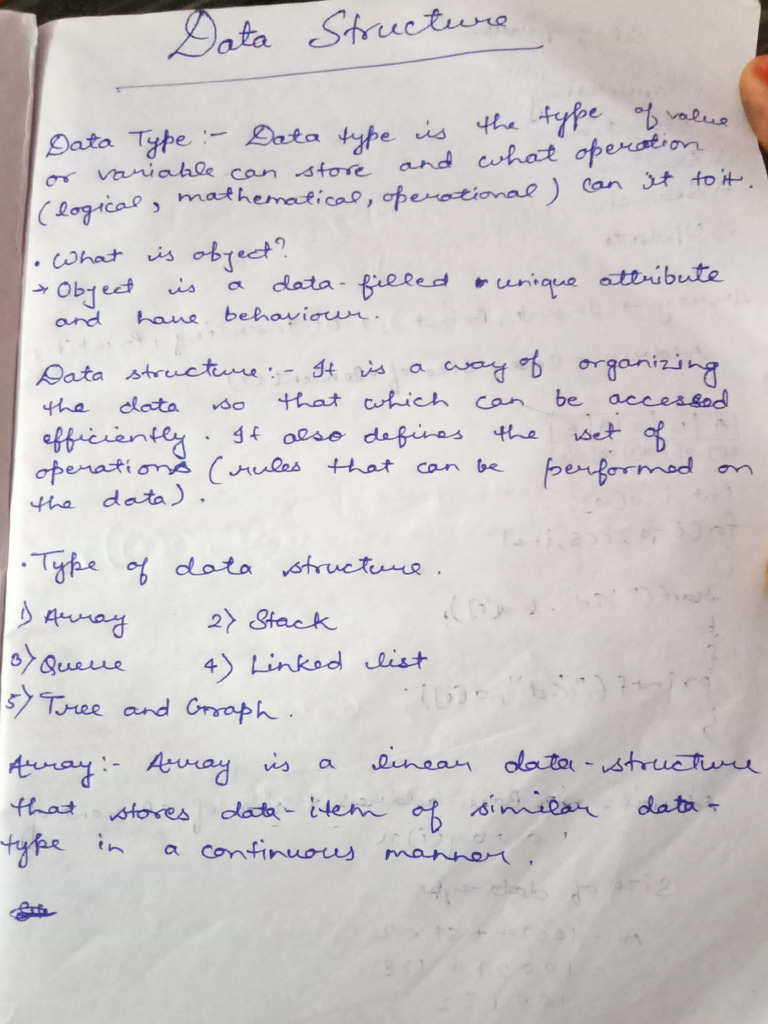 Data Structure
Data Type :- Data type is the type of value
or variable can store and what operation
(logical, mathematical, operational) can it to it.
• What is object?
→ Object is a data-filled unique attribute
and have behaviour.
Data structure :- It is a way of organizing
the data so that which can be accessed
efficiently. It also defines the set of
operations (rules that can be performed on
the data).
• Type of data structure.
1) Array 2) Stack
3) Queue 4) Linked list
5) Tree and Graph.
Array :- Array is a linear data-structure
that stores data-item of similar data-
type in a continuous manner.